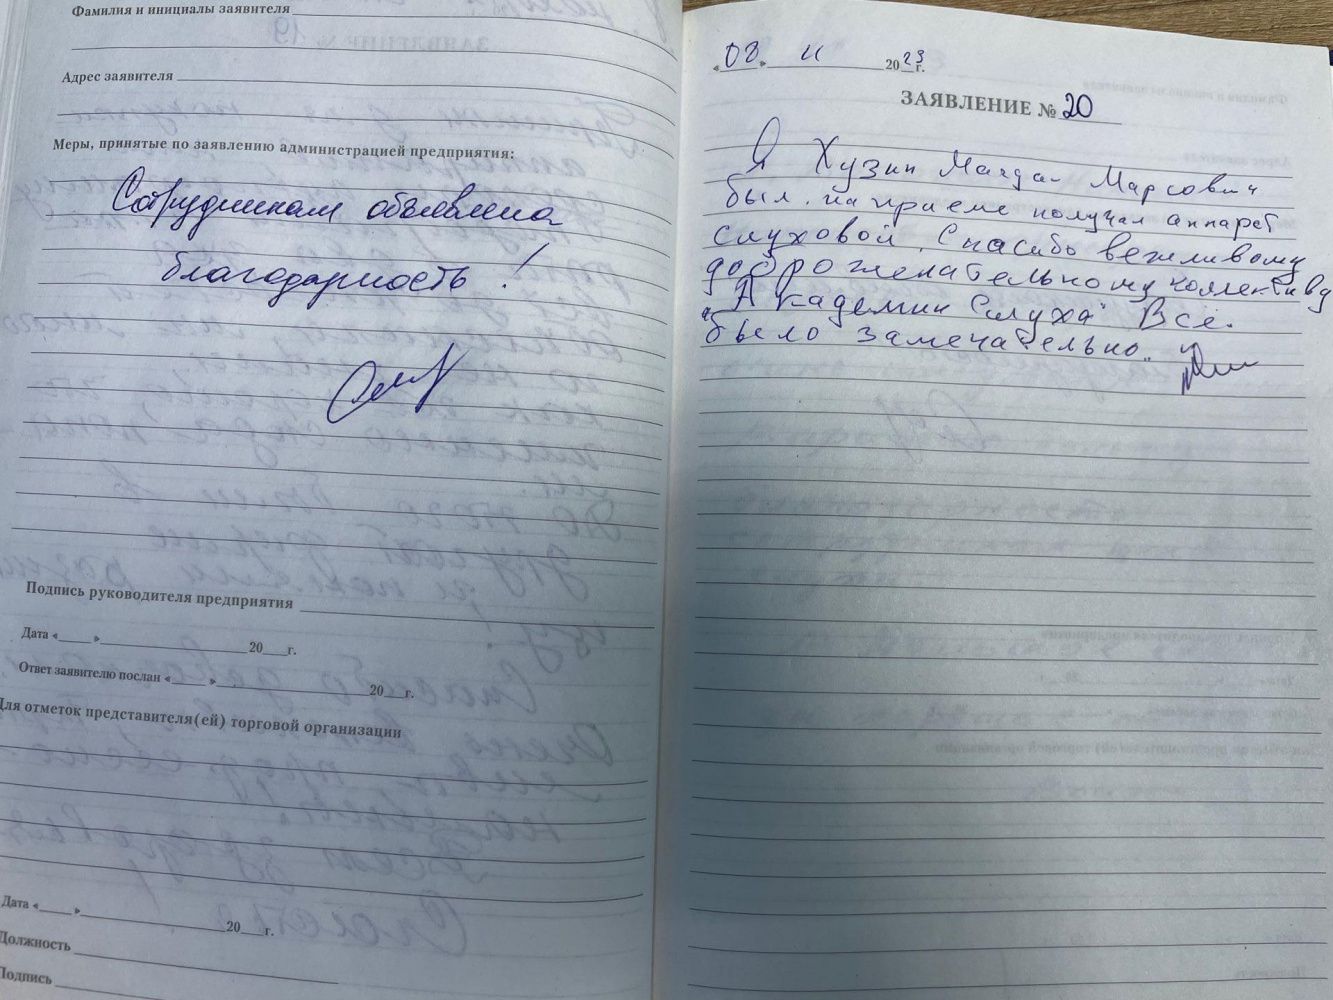 Фамилия и инициалы заявителя
Адрес заявителя
Меры, принятые по заявлению администрацией предприятия:
Сотрудникам объявлена
благодарность !
Подпись руководителя предприятия
Дата «____»____ 20__г.
Ответ заявителю послан «____»____ 20__г.
Для отметок представителя(ей) торговой организации
Дата «____»____ 20__г.
Должность
Подпись
«08» 11 2023г.
ЗАЯВЛЕНИЕ № 20
Я Хузин Марсович
был на приеме получал аппарат
слуховой. Спасибо вежливому
доброжелательному коллективу
"Академии Слуха" Всё.
было замечательно.